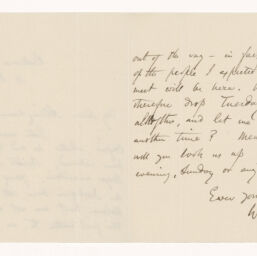 out of the way — in fac
of the people I expected
meet will be here.
therefore drop Tuesda
altogether, and let me
another time? Mea
will you look us up
evening, Sunday or any
Ever you
W